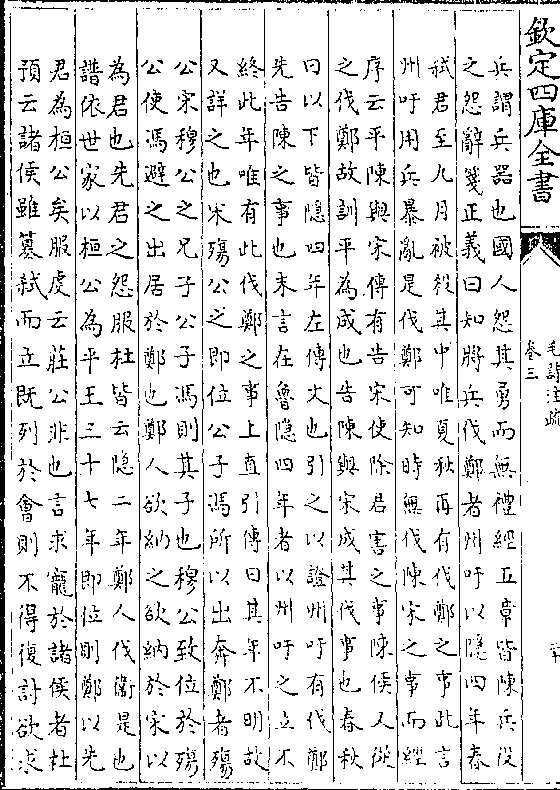 欽定四庫全書
毛詩注疏
卷三
兵謂兵器也國人怨其勇而無禮經五章皆陳兵役
之怨辭箋正義曰知將兵伐鄭者州吁以隱四年春
弒君至九月被殺其中唯夏秋再有伐鄭之事此言
州吁用兵暴亂是伐鄭可知時無伐陳宋之事而經
序云平陳與宋傳有告宋使除君害之事陳侯人從
之伐鄭故訓平為成也告陳與宋成其伐事也春秋
曰以下皆隱四年左傳文也引之以證州吁有伐鄭
先告陳之事也末言在魯隱四年者以州吁之立不
終此年唯有此伐鄭之事上直引傳曰其年不明故
又詳之也宋殤公之即位公子馮所以出奔鄭者殤
公宋穆公之兄子公子馮則其子也穆公致位於殤
公使馮避之出居於鄭也鄭人欲納之欲納於宋以
為君也先君之怨服杜皆云隱二年鄭人伐衛是也
譜依世家以桓公為平王三十七年即位則鄭以先
君為桓公矣服虔云莊公非也言求寵於諸侯者杜
預云諸侯雖篡弒而立既列於會則不得復討欲求